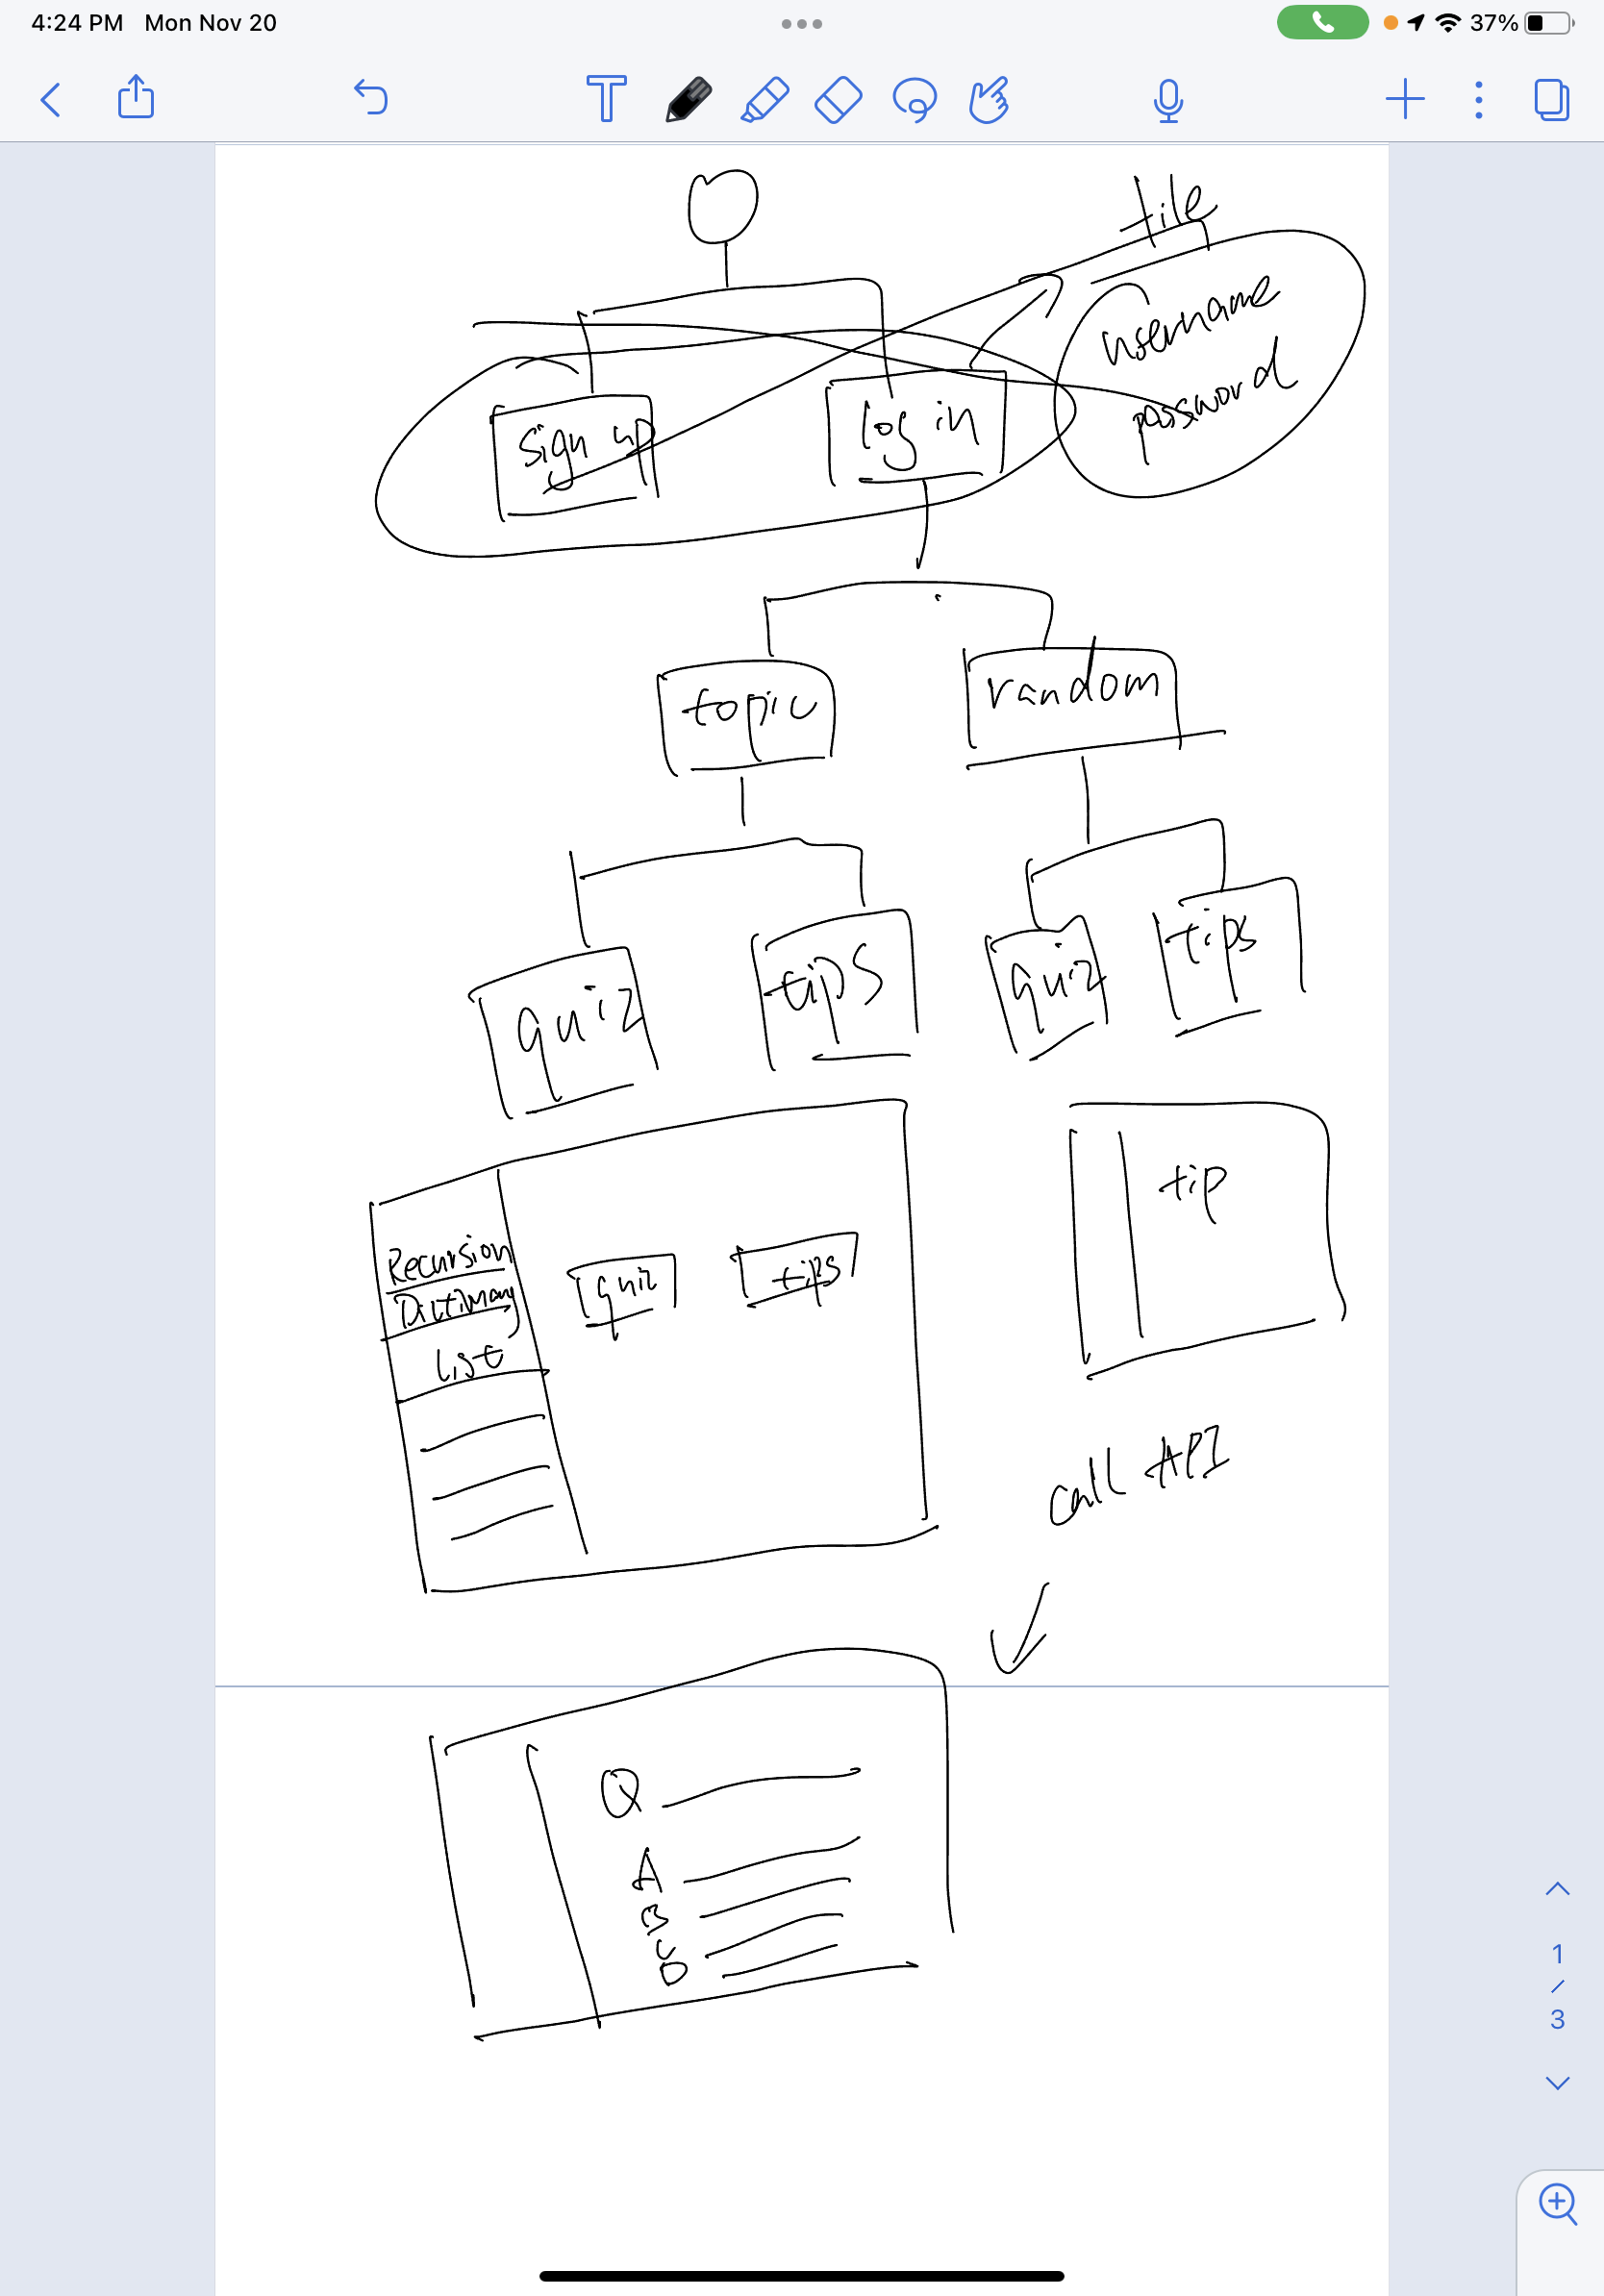 4:24 PM Mon Nov 20
37%
T
file
username
password
sign up
log in
topic
random
quiz
tips
quiz
tips
Recursion
Dictionary
List
quiz
tips
tip
call API
Q
A
B
C
D
1
/
3